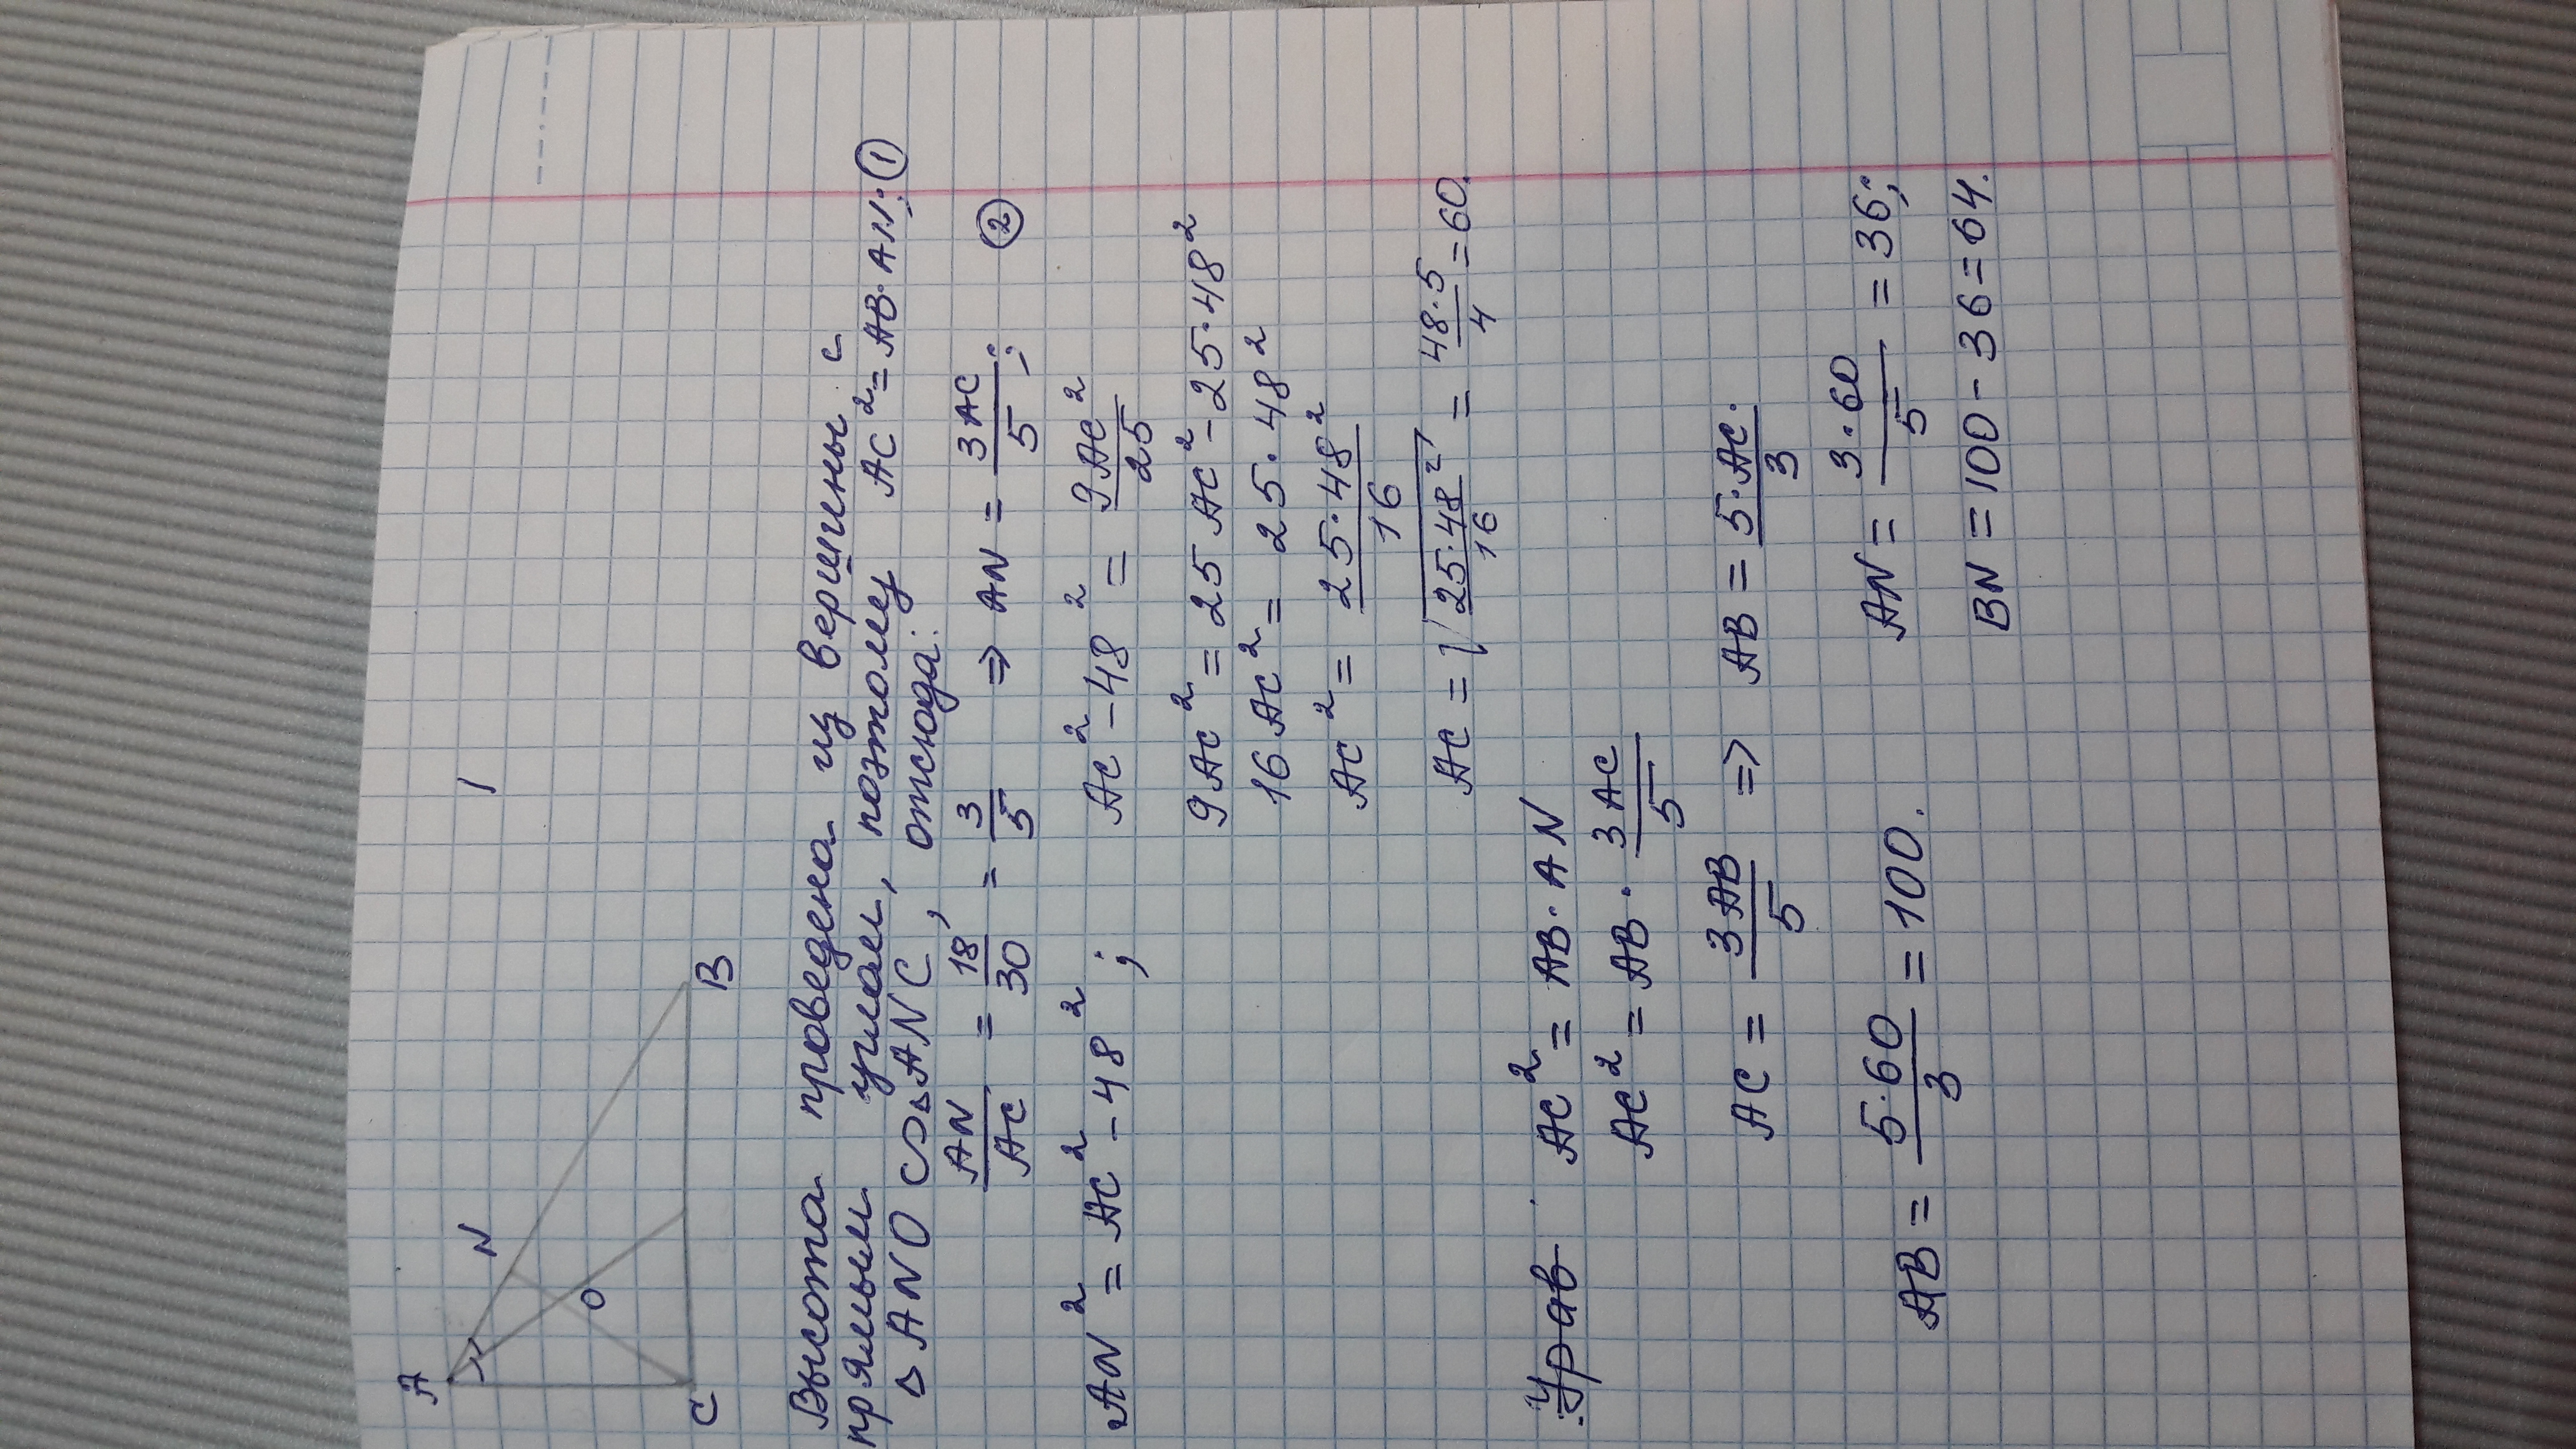 A
N
O
C
B
Высота проведена из вершины с
прямым углом, поэтому AC² = AB·AN; ①
△ANO ∽ △ANC, отсюда:
AN/AC = 18/30 = 3/5 ⇒ AN = 3AC/5; ②
AN² = AC² - 48²; AC² - 48² = 9AC²/25
9AC² = 25AC² - 25·48²
16AC² = 25·48²
AC² = 25·48²/16
AC = √(25·48²/16) = 48·5/4 = 60.
Урав. AC² = AB·AN
AC² = AB·3AC/5
AC = 3AB/5 ⇒ AB = 5·AC/3.
AB = 5·60/3 = 100. AN = 3·60/5 = 36;
BN = 100 - 36 = 64.